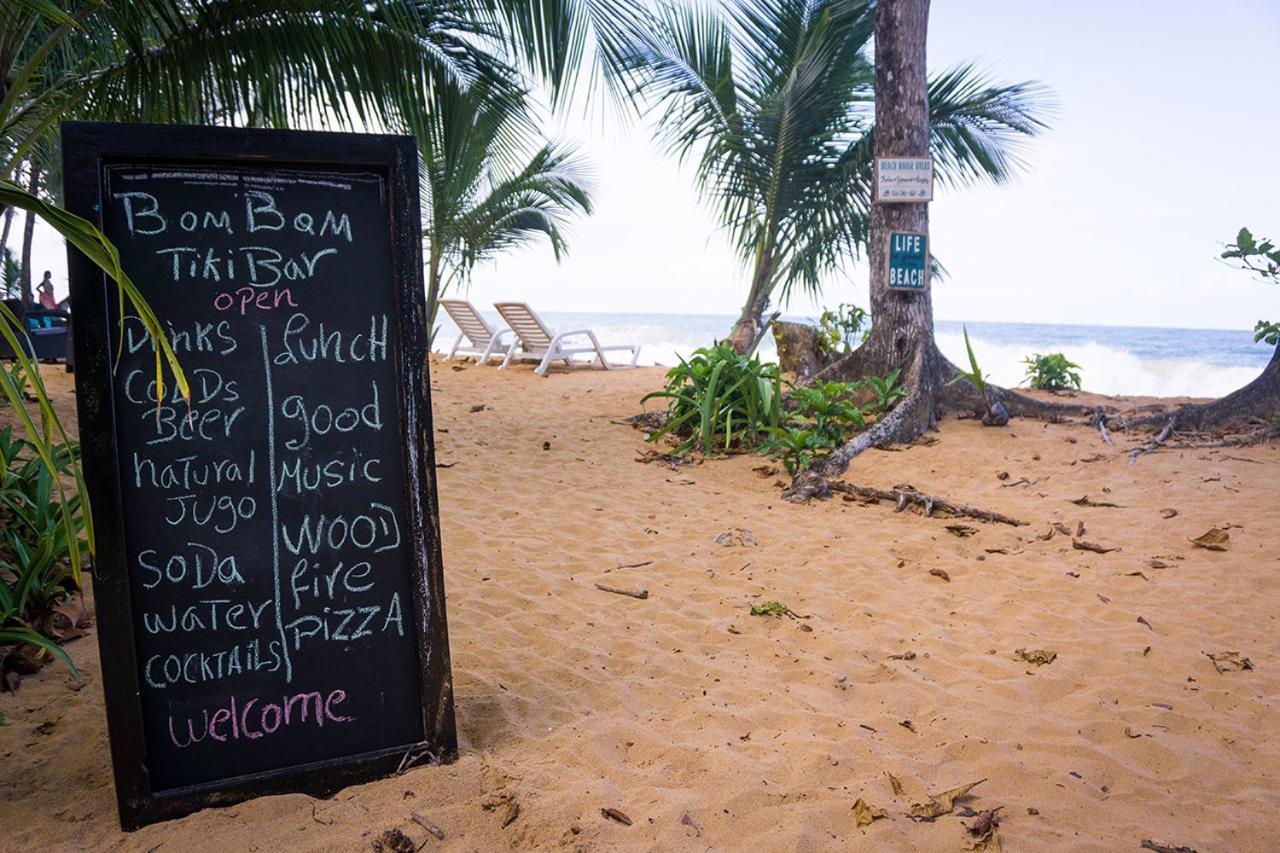 Bom Bam
Tiki Bar
open
Drinks
CoLDs
Beer
natural
Jugo
SoDa
WaTer
COCKTAILS
Lunch
good
Music
WOOD
fire
PIZZA
welcome
BEACH HOUSE RULES
LIFE
BEACH